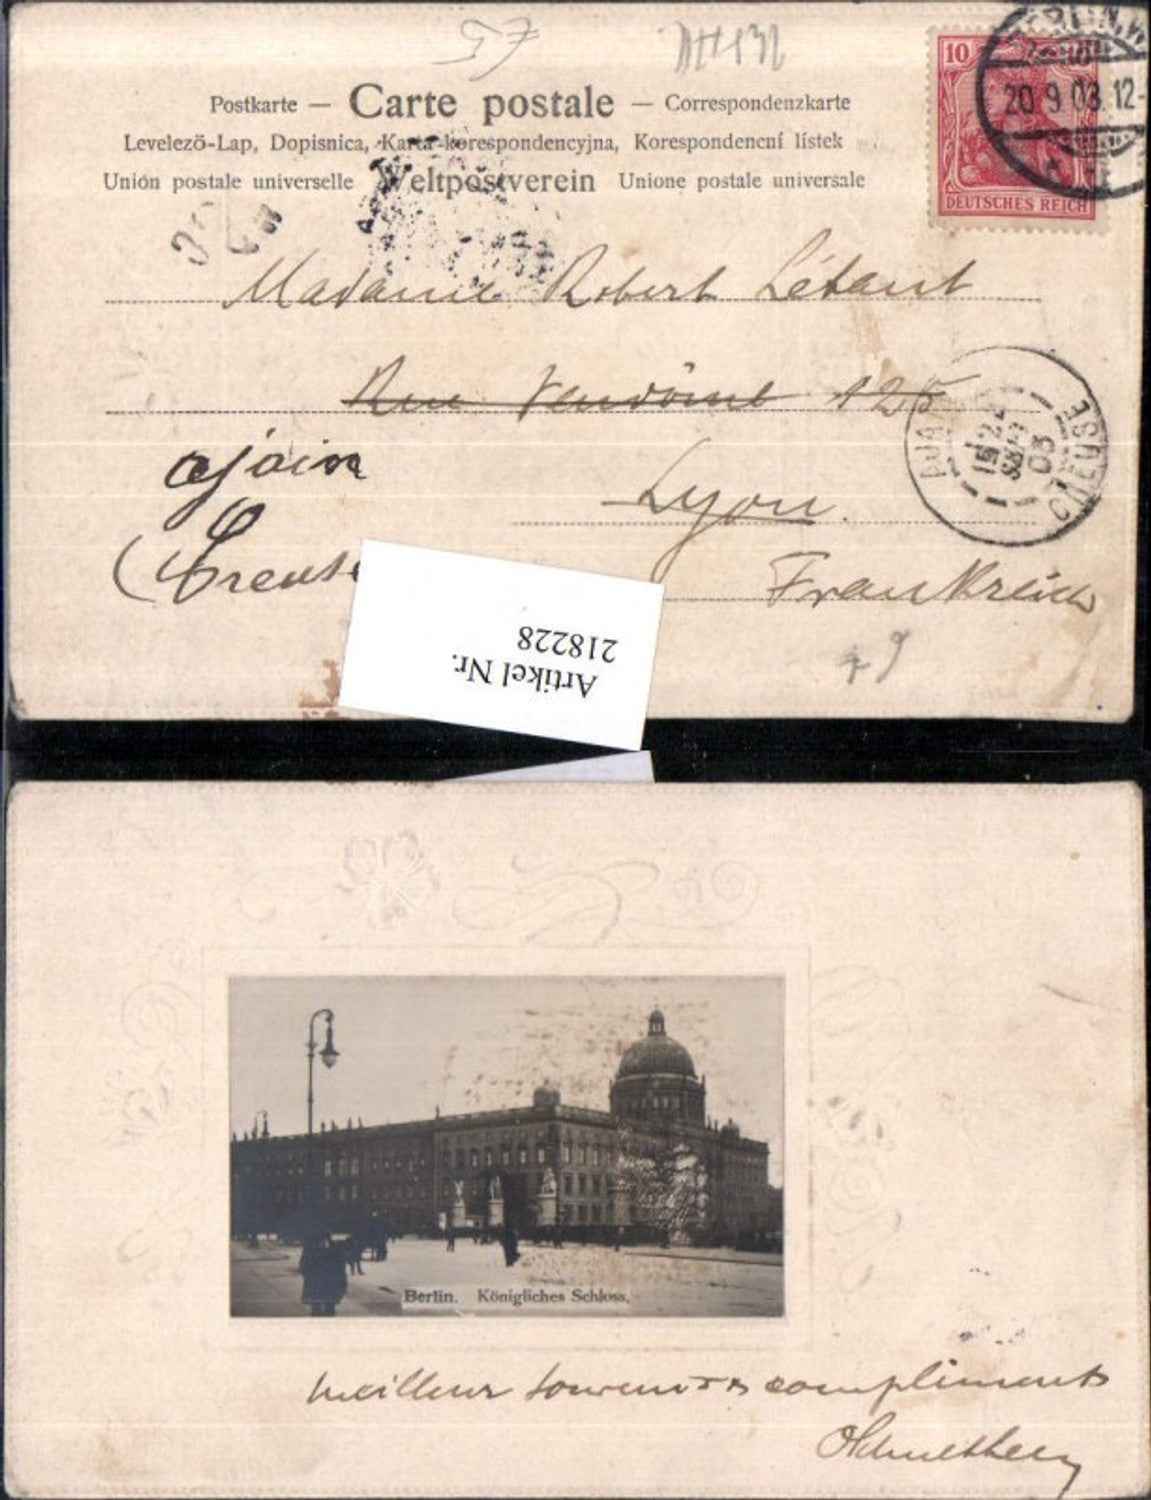 57
Postkarte — Carte postale — Correspondenzkarte
Levelező-Lap, Dopisnica, Karta korespondencyjna, Korespondencní lístek
Unión postale universelle Weltpostverein Unione postale universale
10
DEUTSCHES REICH
BERLIN, W
20.9.03.12-
Madame Robert Létant
Rue Vendôme 125
ajain
Lyon.
(Creuse
Frankreich
AJAIN
CREUSE
22
SEPT
03
Artikel Nr.
218228
Berlin. Königliches Schloss.
meilleur souvenirs compliments